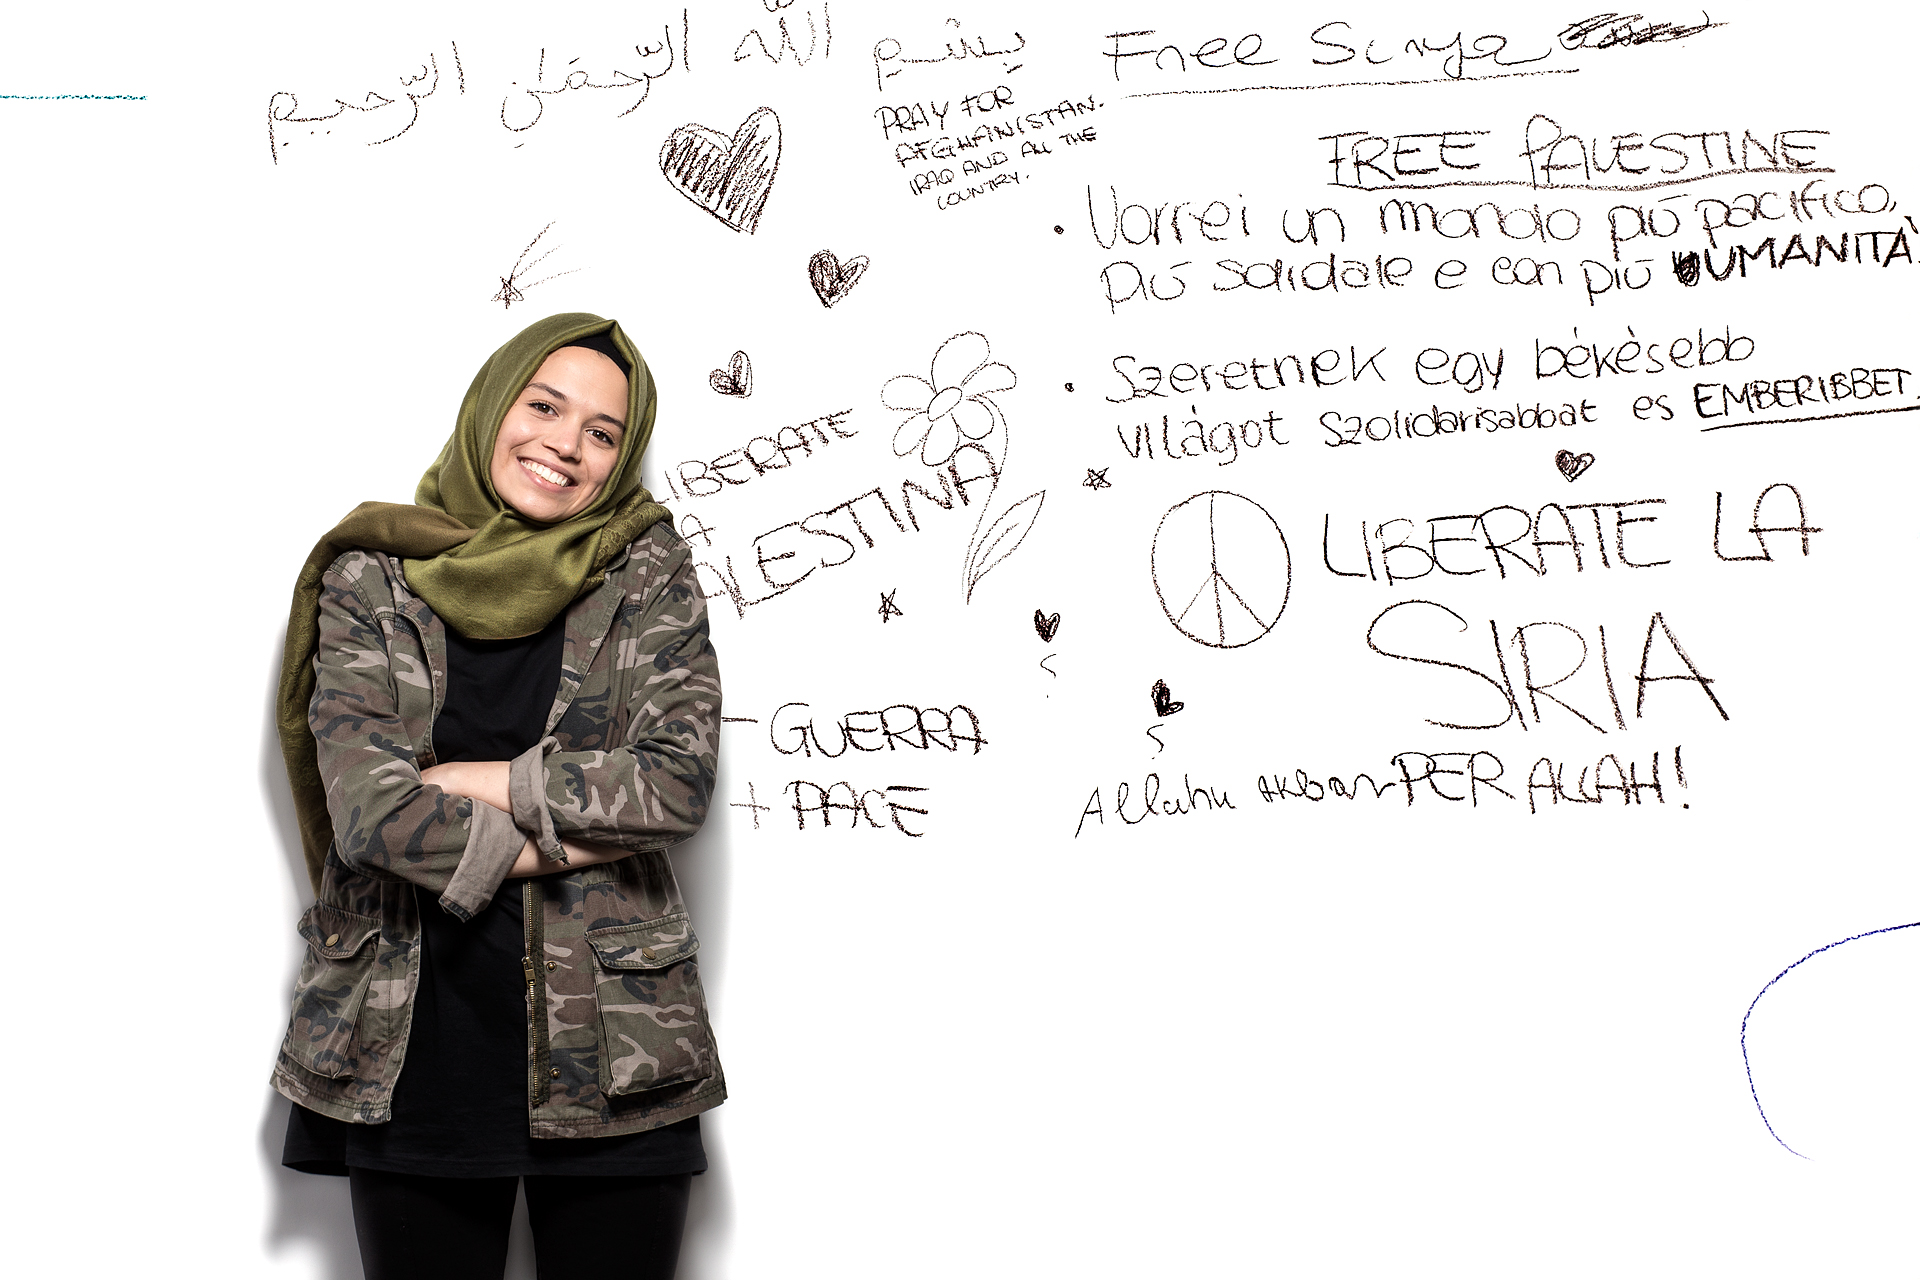 بِسْمِ اللّٰه الرّحمٰن الرّحيم
Free Surya
PRAY FOR
AFGHANISTAN.
IRAQ AND ALL THE
COUNTRY.
FREE PALESTINE
• Vorrei un mondo più pacifico,
più solidale e con più UMANITÀ.
• Szeretnek egy békèsebb
világot szolidarisabbat es EMBERIBBET.
LIBERATE
LA
PALESTINA
LIBERATE LA
SIRIA
- GUERRA
+ PACE
Allahu akbar PER ALLAH!